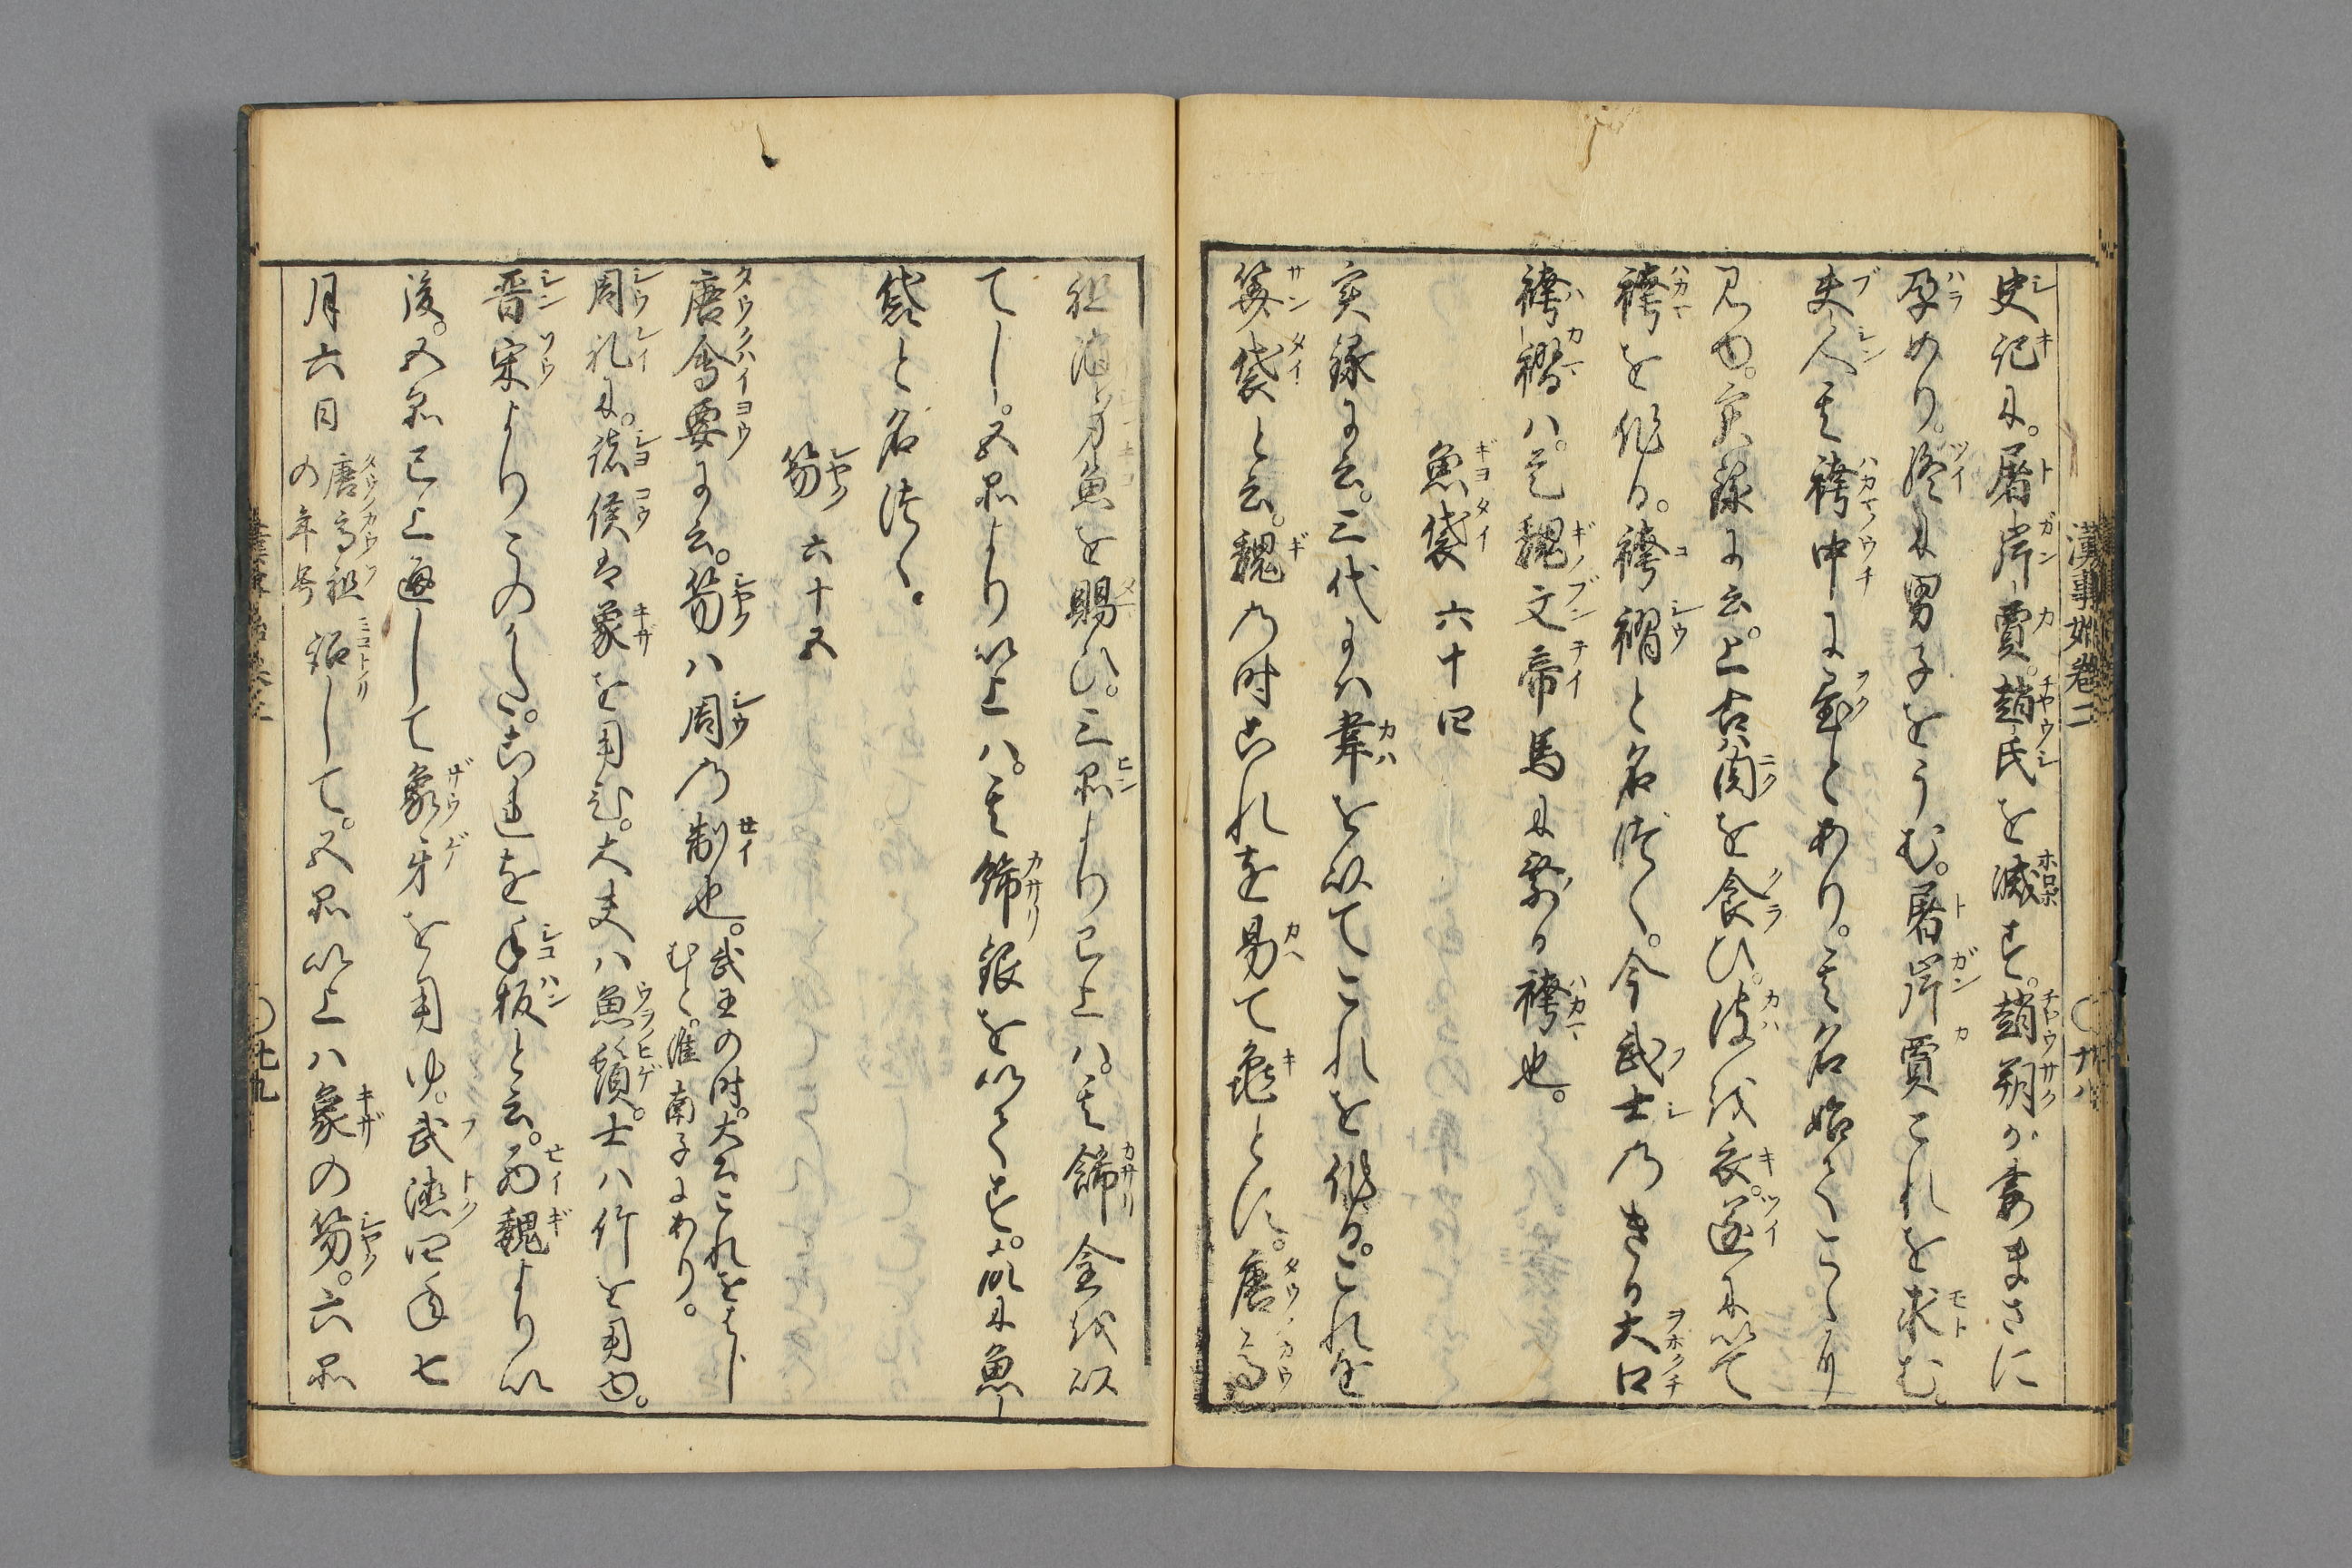 漢事始巻二
〇十八
史記に。屠岸賈。趙氏を滅す。趙朔が妻まさに
孕めり。終に男子をうむ。屠岸賈これを求む。
夫人其袴中に置とあり。其名始てこゝに
見ゆ。実録に云。上古ハ肉を食ひ。皮を衣。遂に以て
袴を作る。袴褶と名づく。今武士のきる大口
袴褶ハ。是魏文帝馬に乗る袴也。
魚袋 六十四
実録に云。三代にハ韋を以てこれを作る。これを
筭袋と云。魏の時これを易て亀とす。唐ノ高
祖
魚を賜ひ。三品より已上ハ。其飾金を以
てし。五品より以上ハ。其飾銀を以てす。故に魚
袋と名づく。
笏 六十五
唐会要に云。笏ハ周の制也。
武王の時。太公これをはじ
むと。淮南子にあり。
周礼に。諸侯は象を用ひ。大夫ハ魚鬚。士ハ竹を用ゆ。
晋宋よりこのかた。これを手板と云。西魏より以
後。五品已上通して象牙を用ゆ。武徳四年七
月六日
唐ノ高祖
の年号
詔して。五品以上ハ象の笏。六品
〇十九